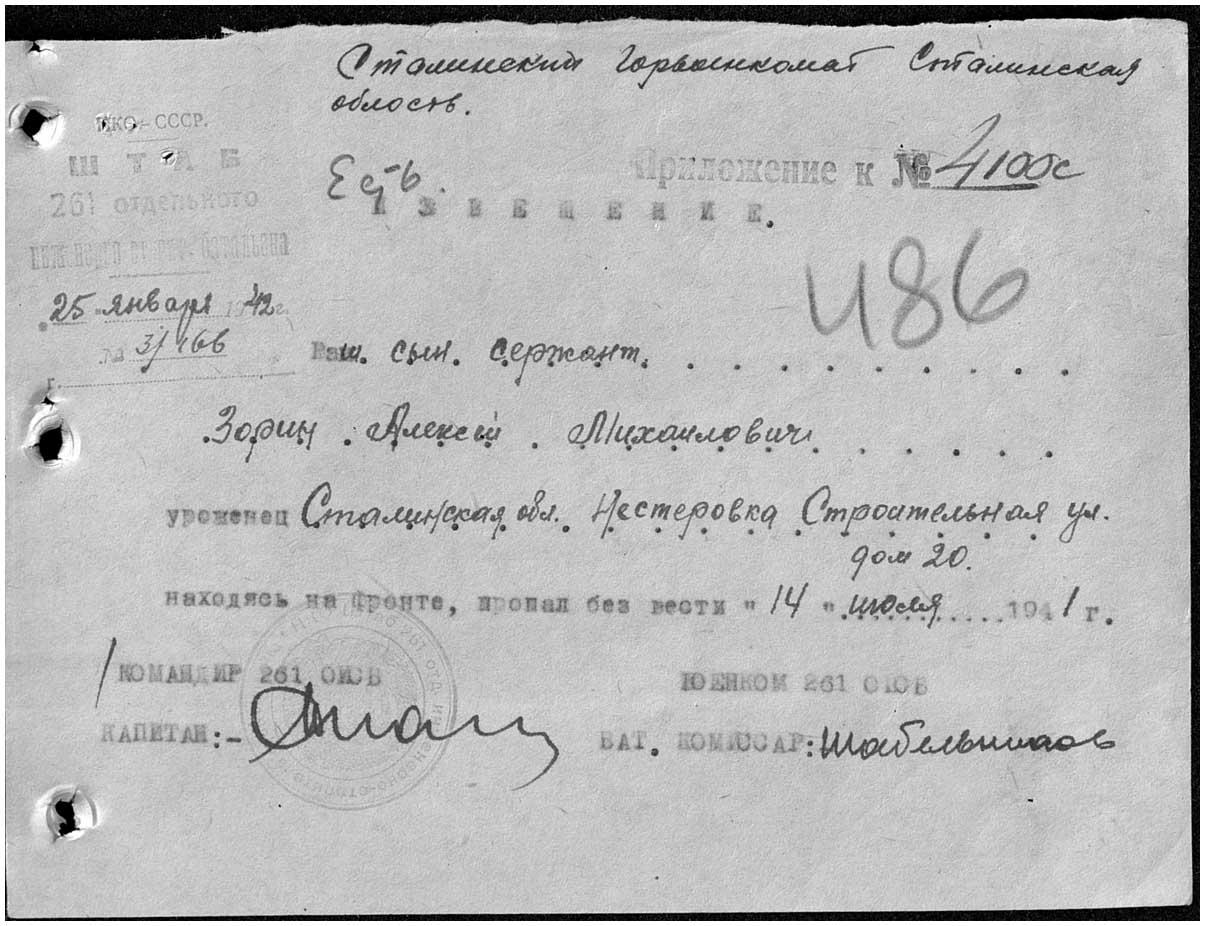 Сталинский Горвоенкомат Сталинская
область.
НКО-СССР.
ШТАБ
261 отдельного
батальона
25 января 1942 г.
№ 3/166
г.
Есть.
Приложение к № 4100с
ИЗВЕЩЕНИЕ.
486
Ваш. сын. сержант.
Зорин. Алексей. Михаилович
уроженец Сталинская обл. Нестеровка Строительная ул.
дом 20.
находясь на фронте, пропал без вести " 14 " июля 1941 г.
КОМАНДИР 261 ОИСБ
КАПИТАН:-
ВОЕНКОМ 261 ОИСБ
БАТ. КОМИССАР: Шабельников